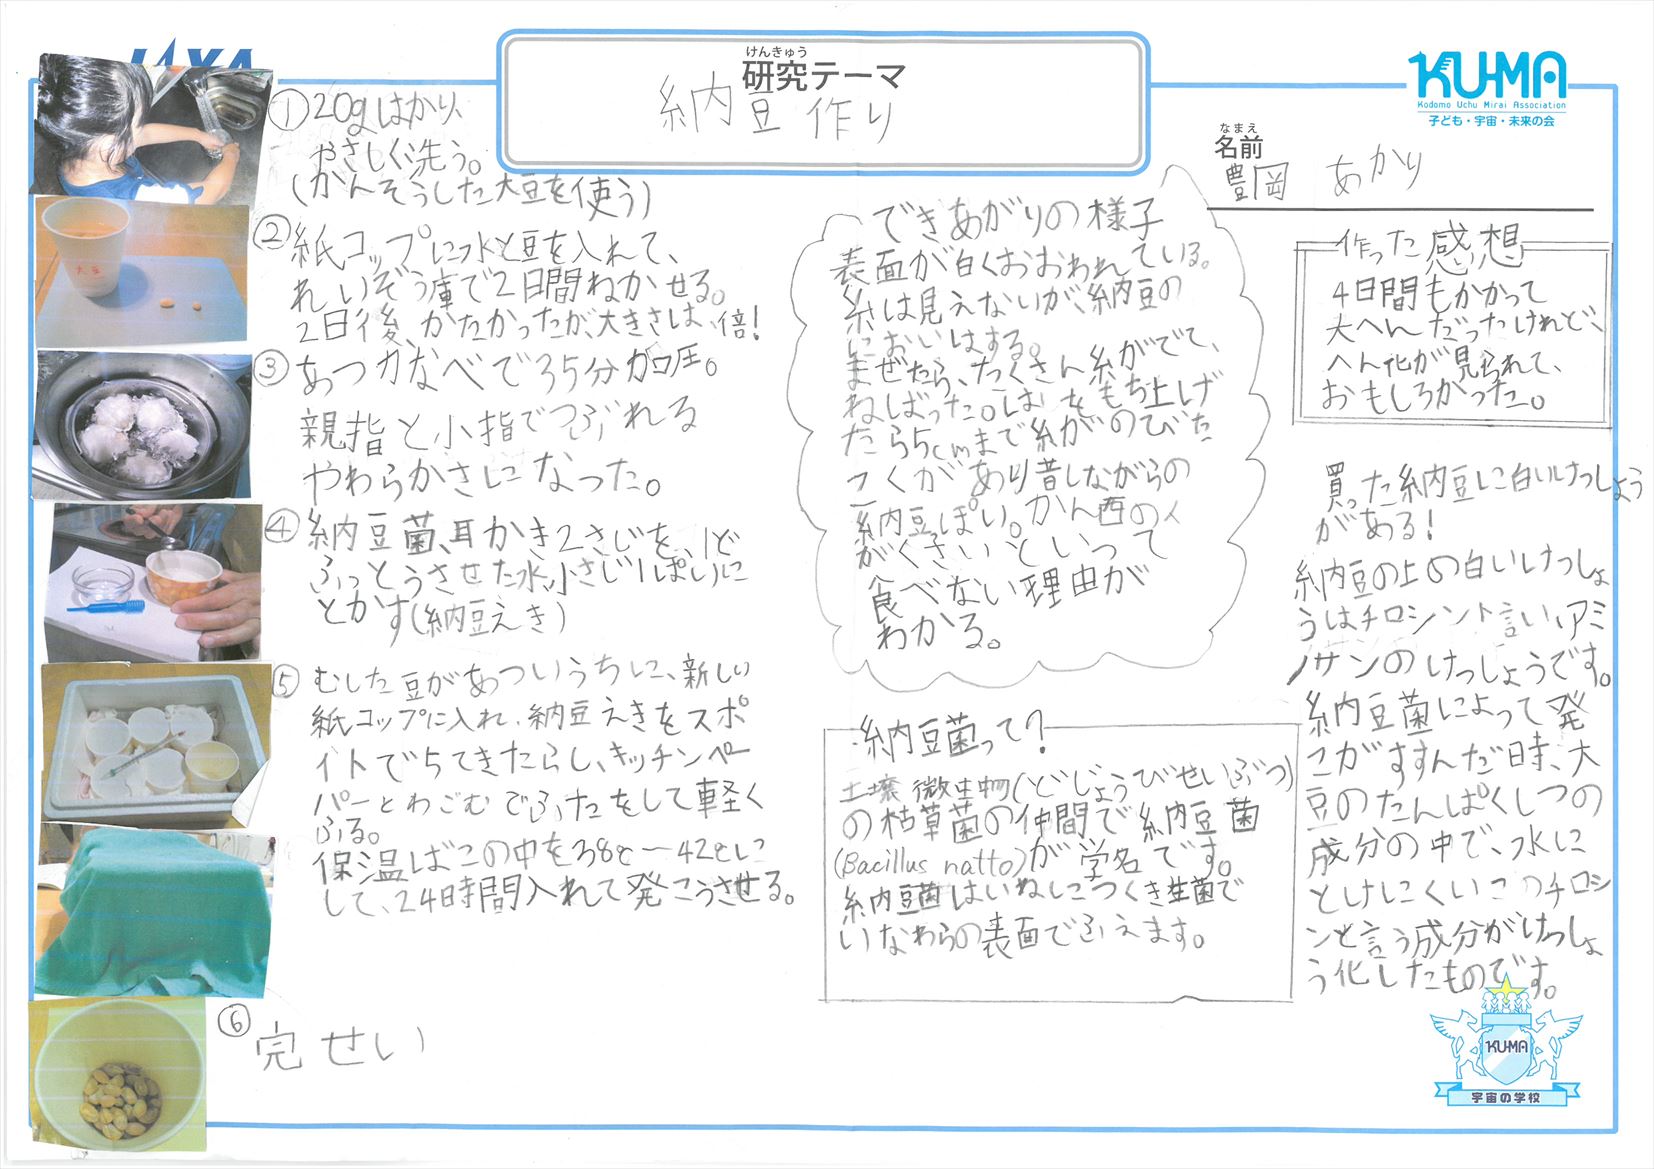 JAXA
けんきゅう
研究テーマ
納豆作り
KU-MA
Kodomo Uchu Mirai Association
子ども・宇宙・未来の会
なまえ
名前
豊岡 あかり
①20gはかり、
やさしく洗う。
(かんそうした大豆を使う)
大豆
②紙コップに水と豆を入れて、
れいぞう庫で2日間ねかせる。
2日後、かたかったが、大きさは、倍!
③あつ力なべで35分加圧。
親指と小指でつぶれる
やわらかさになった。
④納豆菌、耳かき2さじを、1ど
ふっとうさせた水小さじ1ぱいに
とかす(納豆えき)
⑤むした豆があついうちに、新しい
紙コップに入れ、納豆えきをスポ
イトで5てきたらし、キッチンペー
パーとわごむでふたをして軽く
ふる。
保温ばこの中を38℃〜42℃に
して、24時間入れて発こうさせる。
⑥完せい
できあがりの様子
表面が白くおおわれている。
糸は見えないが、納豆の
においはする。
まぜたら、たくさん糸がでて、
ねばった。はしをもち上げ
たら5cmまで糸がのびた
こくがあり昔しながらの
納豆っぽい。かん西の人
がくさいといって
食べない理由が
わかる。
納豆菌って?
土壌微生物(どじょうびせいぶつ)
の枯草菌の仲間で納豆菌
(Bacillus natto)が学名です。
納豆菌はいねにつくき生菌で
いなわらの表面でふえます。
作った感想
4日間もかかって
大へんだったけれど、
へん化が見られて、
おもしろかった。
買った納豆に白いけっしょう
がある!
納豆の上の白いけっしょ
うはチロシント言い、アミ
ノサンのけっしょうです。
納豆菌によって発
こがすすんだ時、大
豆のたんぱくしつの
成分の中で、水に
とけにくいこのチロシ
ンと言う成分がけっしょ
う化したものです。
KU-MA
宇宙の学校